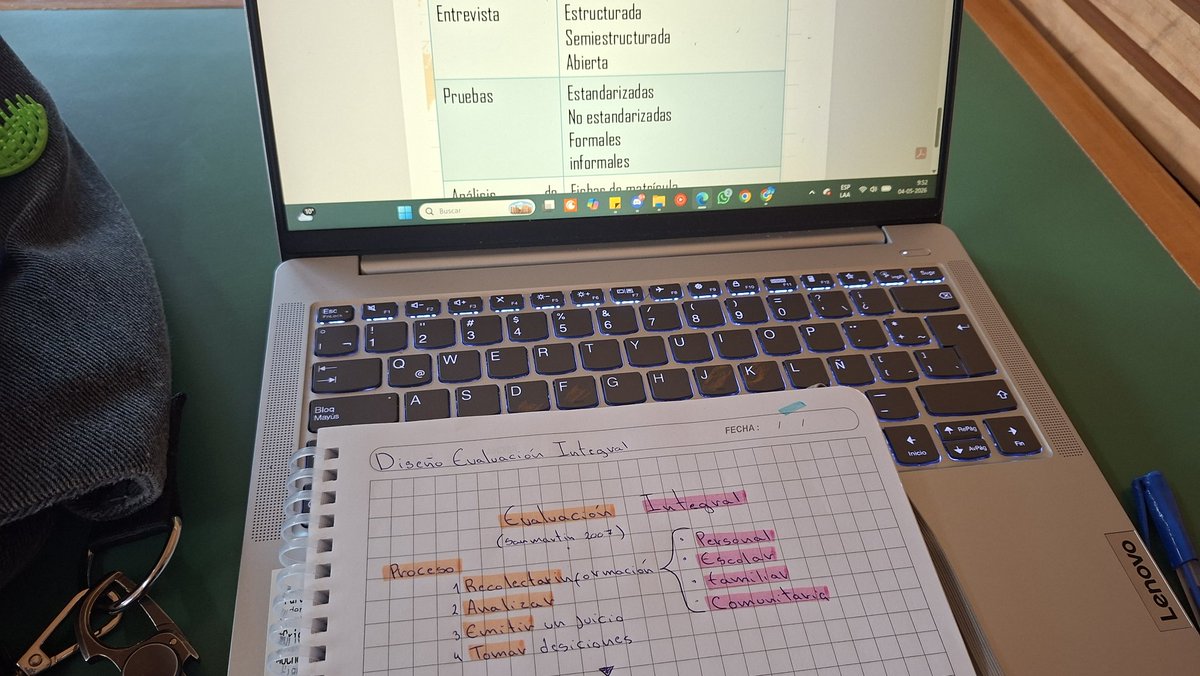 Entrevista
Estructurada
Semiestructurada
Abierta
Pruebas
Estandarizadas
No estandarizadas
Formales
informales
Análisis de Fichas de matrícula
Buscar
ESP
LAA
9:52
04-05-2026
Esc
F1 F2 F3 F4 F5 F6 F7 F8 F9 F10 F11 F12 Supr
! 1 " 2 # 3 $ 4 % 5 & 6 / 7 ( 8 ) 9 = 0
Q @ W E R T Y U I O P
Bloq Mayús A S D F G H J K L Ñ
Inicio RePág AvPág Fin
Lenovo
FECHA: / /
Diseño Evaluación Integral
Evaluación Integral
(Sanmartin 2007)
Proceso
1 Recolectar información
2 Analizar
3 Emitir un juicio
4 Tomar desiciones
· Personal
· Escolar
· familiar
· Comunitaria